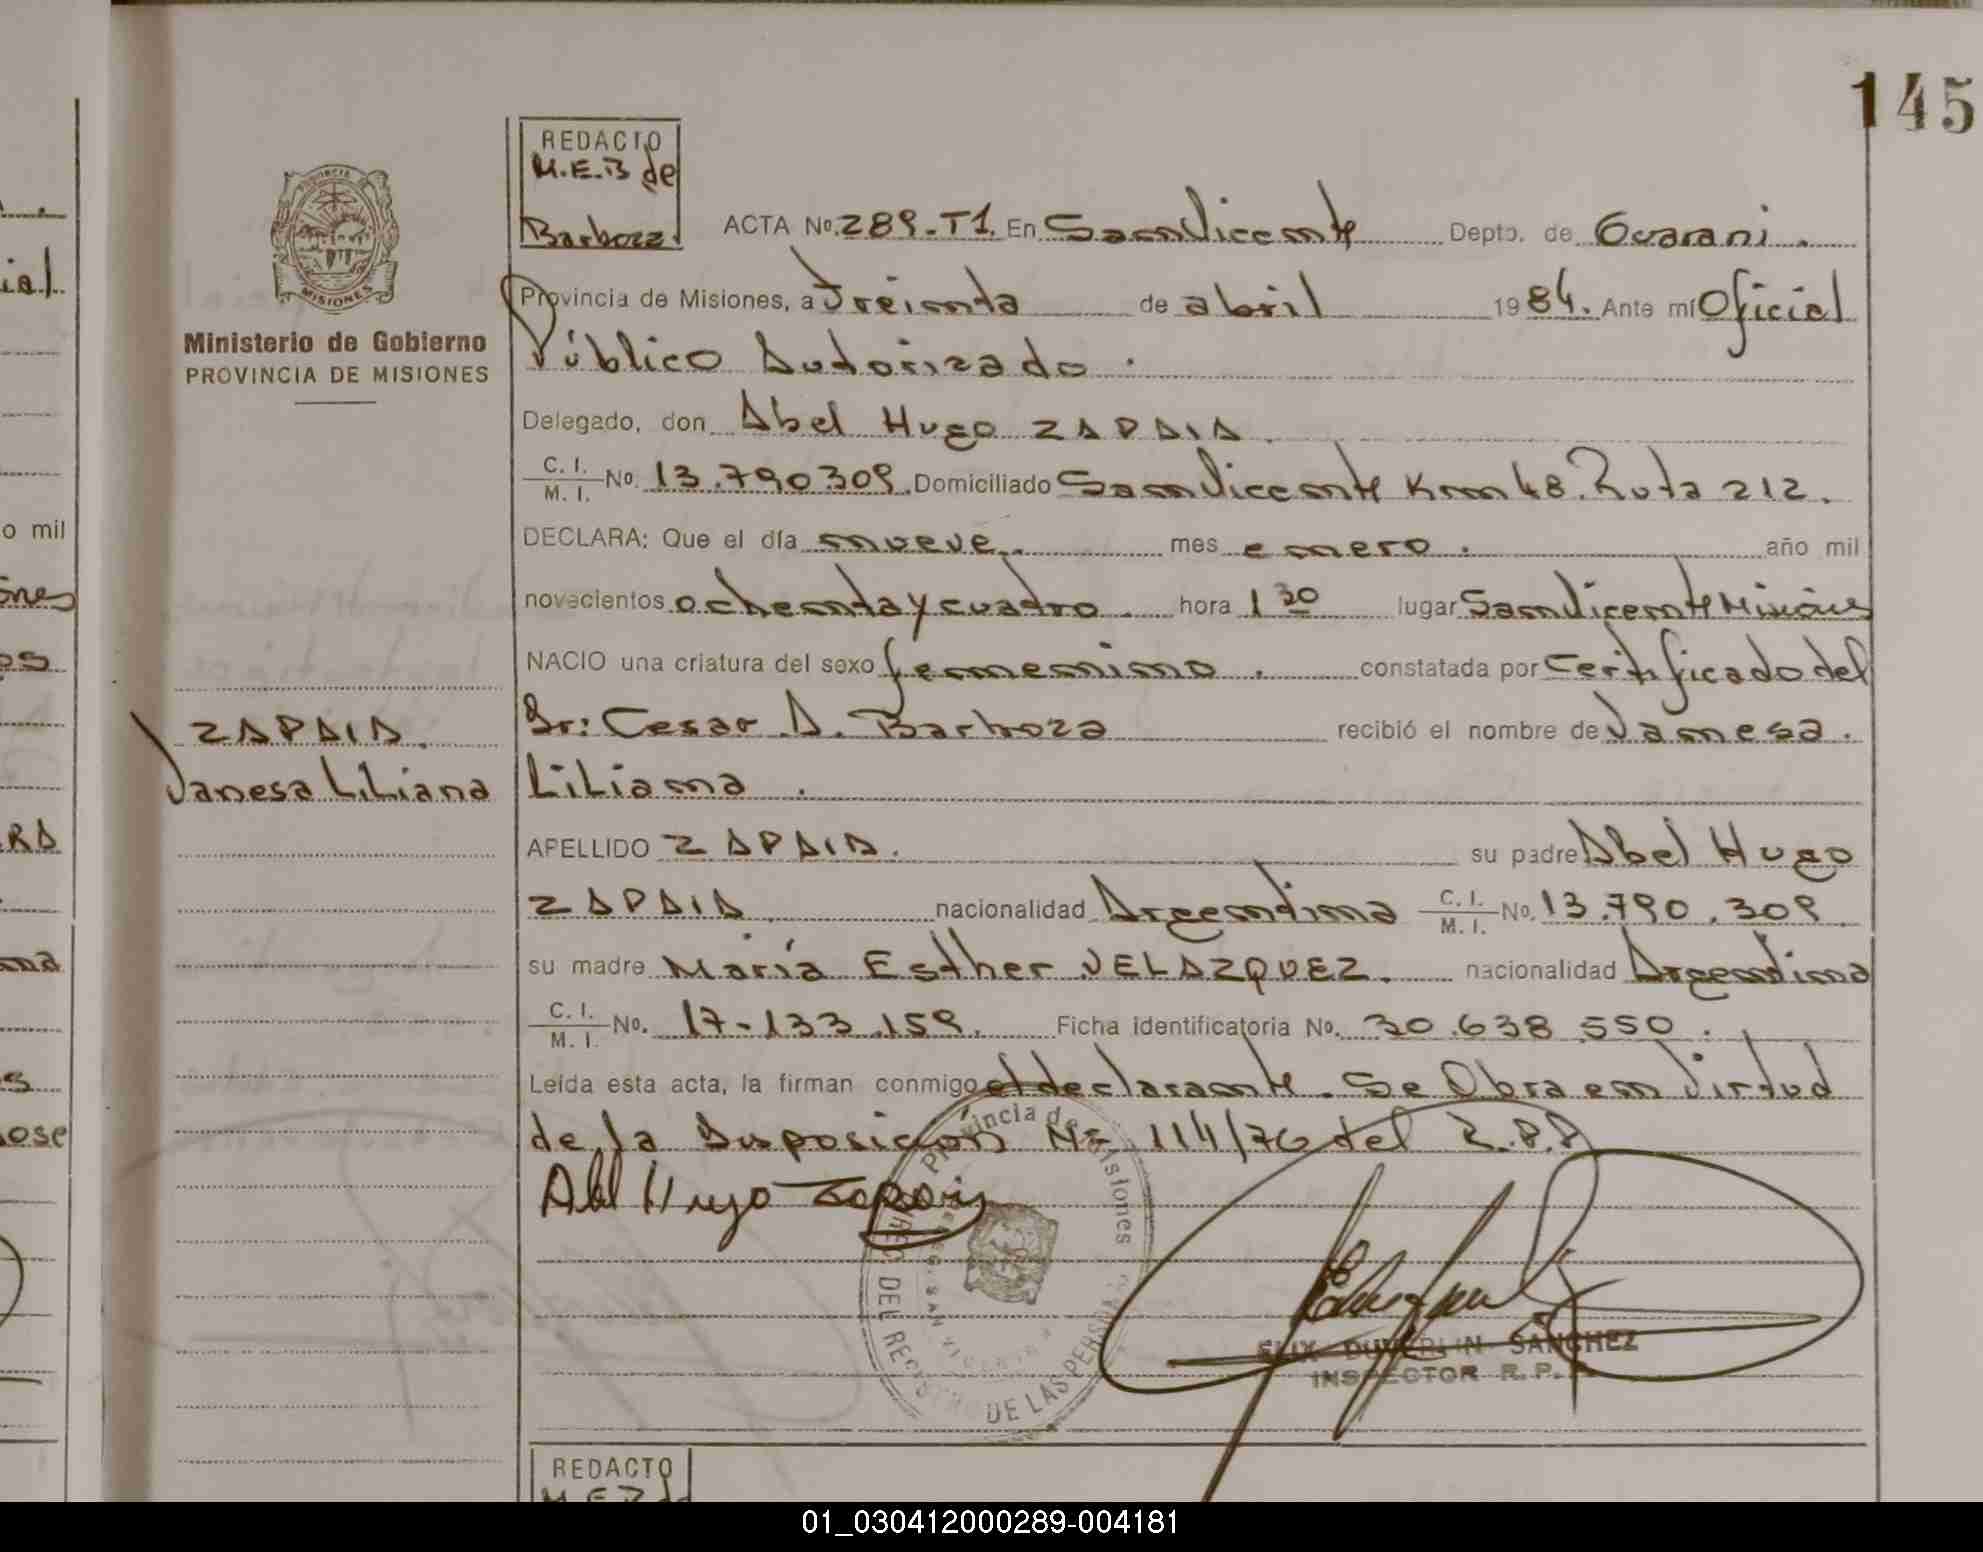 145
REDACTO
M.E.B de
Barboza.
PROVINCIA DE
MISIONES
Ministerio de Gobierno
PROVINCIA DE MISIONES
ACTA No. 289-T1. En San Vicente Depto. de Guarani.
Provincia de Misiones, a Treinta de abril 1984. Ante mí Oficial
Público Autorizado.
Delegado, don Abel Hugo ZAPAIA.
C. I. / M. I. No. 13.790309. Domiciliado San Vicente Km 48. Ruta 212.
DECLARA: Que el día nueve. mes enero. año mil
novecientos ochenta y cuatro. hora 1 30 lugar San Vicente Misiones
NACIO una criatura del sexo femenino. constatada por Certificado del
Dr: Cesar A. Barboza recibió el nombre de Vanesa.
Liliana.
ZAPAIA.
Vanesa Liliana
APELLIDO ZAPAIA. su padre Abel Hugo
ZAPAIA nacionalidad Argentina C. I. / M. I. No. 13.790.309
su madre María Esther VELAZQUEZ. nacionalidad Argentina
C. I. / M. I. No. 17-133.159. Ficha identificatoria No. 30.638.550.
Leída esta acta, la firman conmigo el declarante. Se Obra en Virtud
de la Disposición Nº 114/76 del R.P.P
Abel Hugo Zapaia
Provincia de Misiones
DEL REGISTRO DE LAS PERSONAS
SAN VICENTE
SANCHEZ
INSPECTOR R. P.
REDACTO
M.E.B de
ial
o mil
ones
os
RA
ana
s
ose
01_030412000289-004181